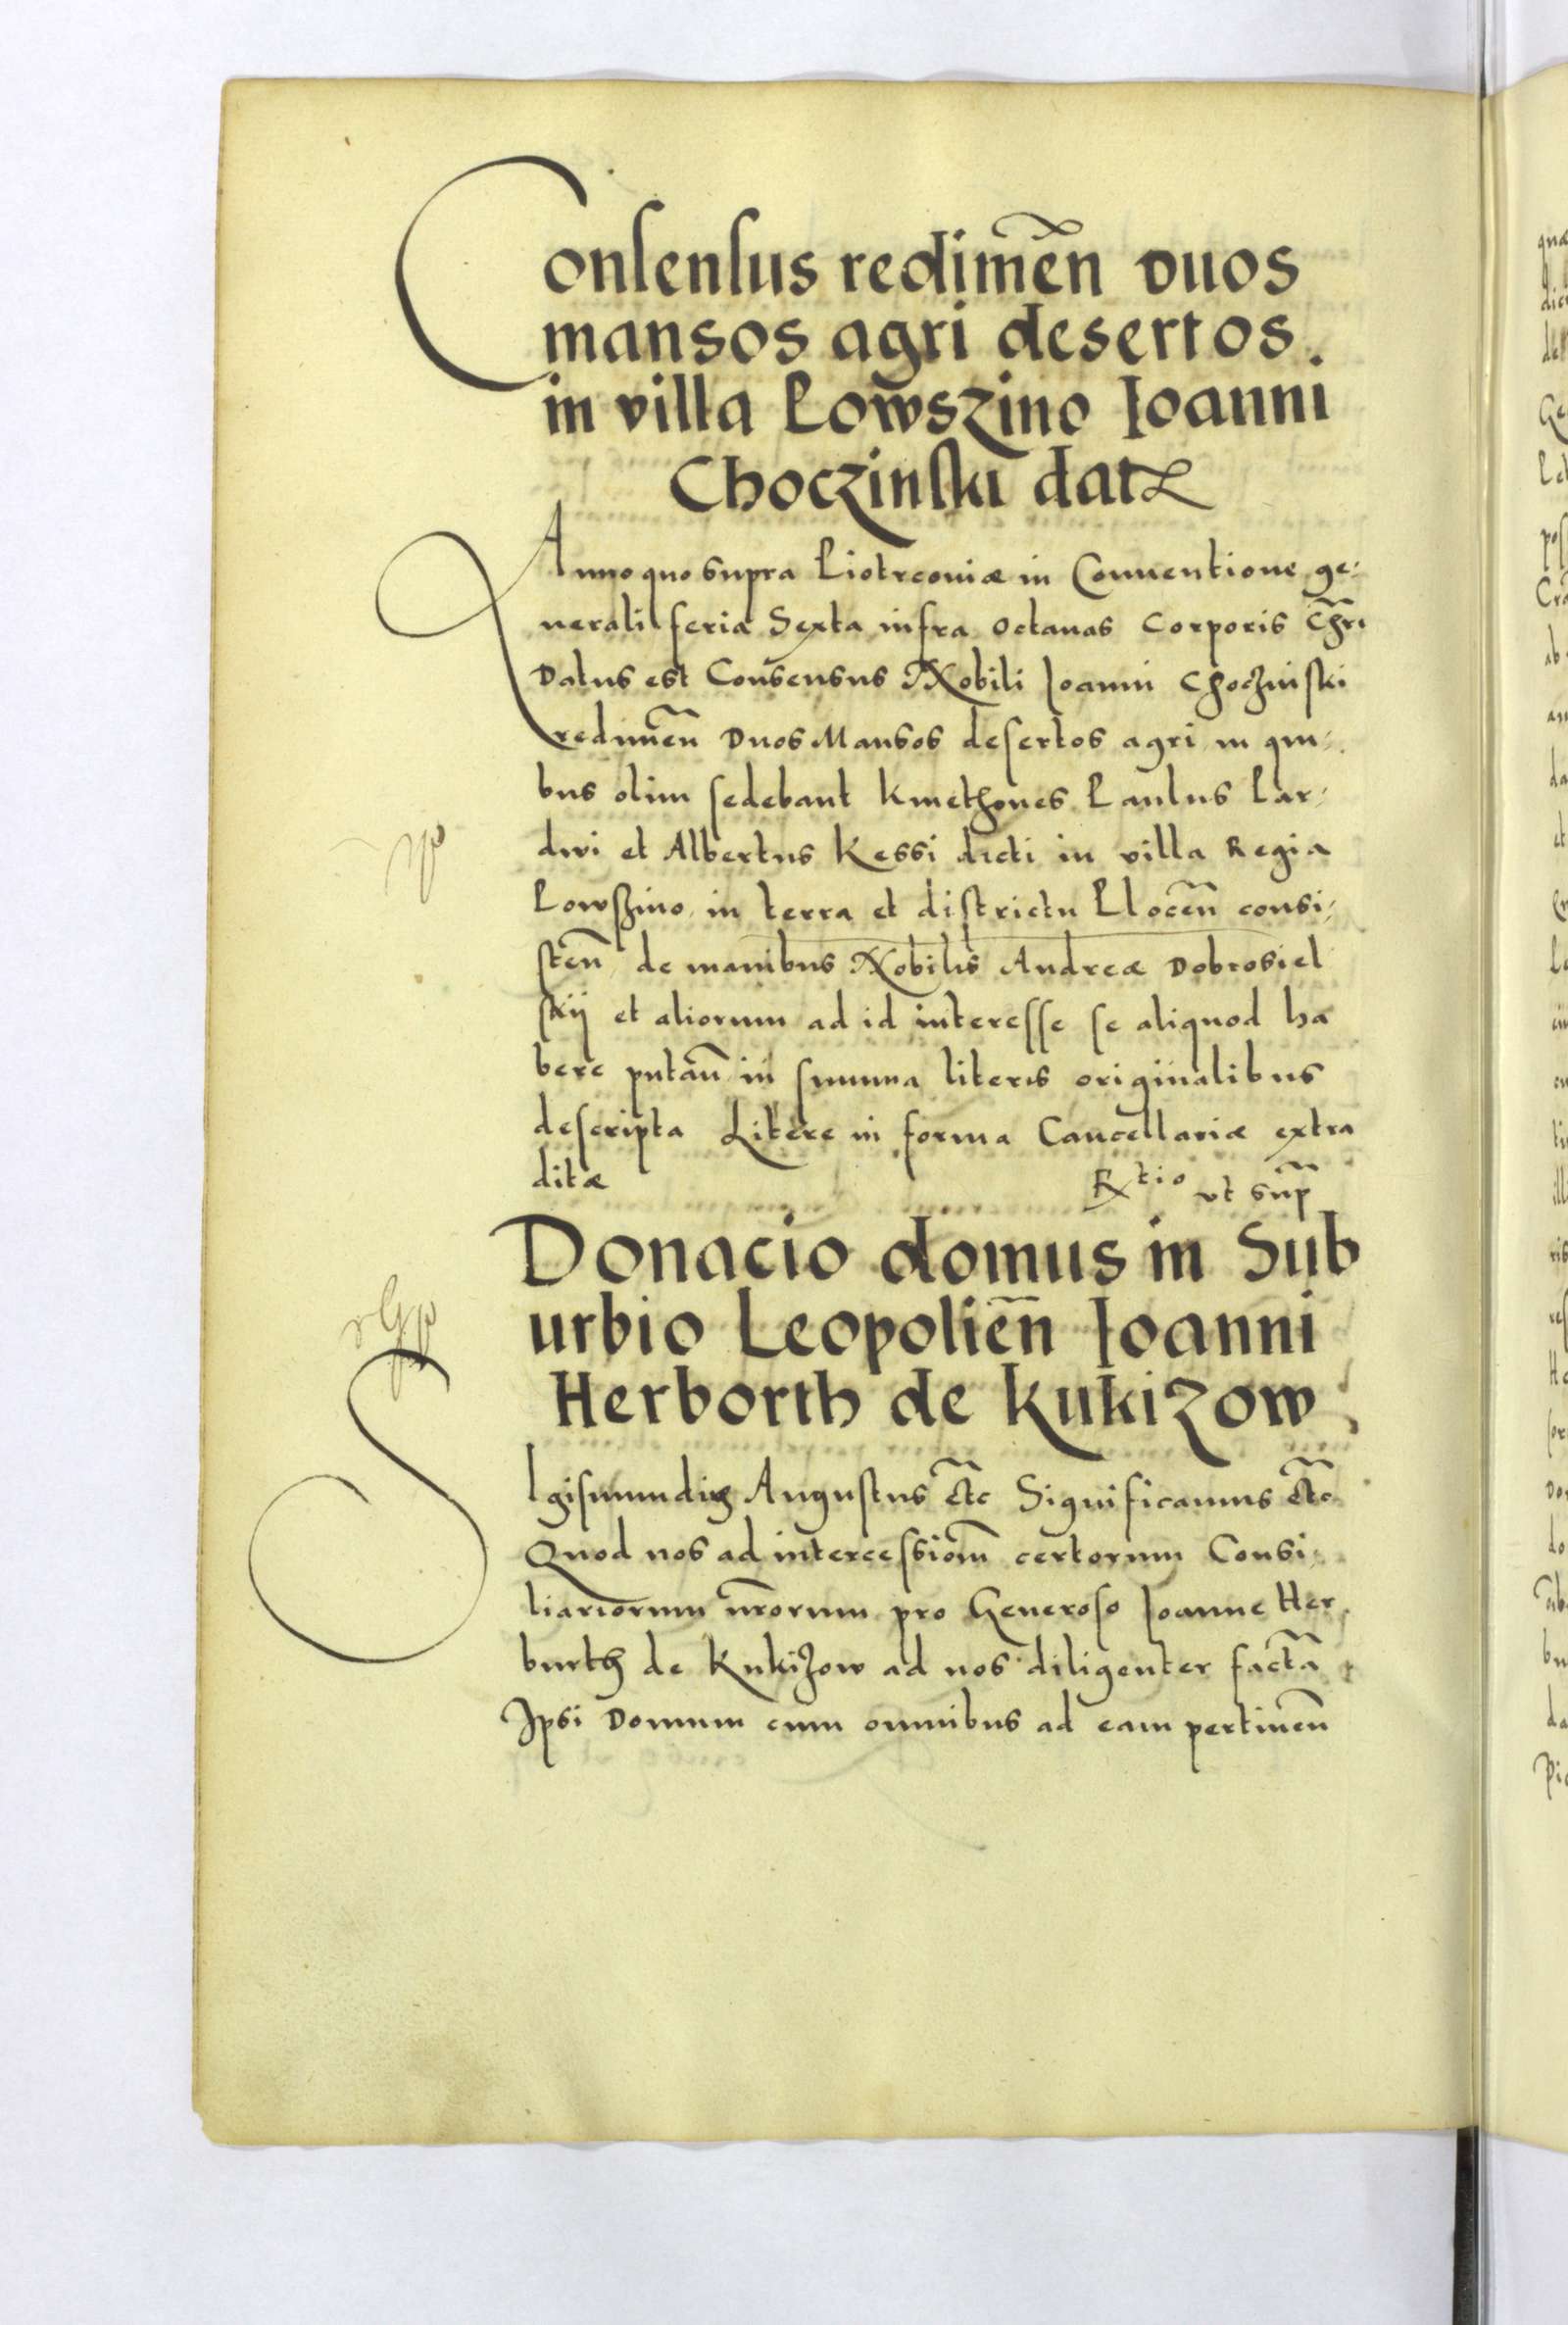 Consensus redimen̄ duos
mansos agri desertos.
in villa Powszino Ioanni
Choczinski datꝫ
Anno quo supra Piotrcoviæ in Conventione ge-
nerali feria Sexta infra octavas Corporis Chr̄i
Datus est Consensus Nobili Ioanni Choczinski
redimen̄ Duos Mansos desertos agri in qui-
bus olim sedebant kmethones Paulus Par-
dwi et Albertus Kessi dicti in villa Regia
Powszino in terra et districtu Plocen̄ consi-
sten̄ de manibus Nobilis Andreæ Dobrosiel
skij et aliorum ad id interesse se aliquod ha
bere putan̄ in summa literis originalibus
descripta Litere in forma Cancellariæ extra
ditæ
R̄tio ut sup̄
Donacio domus in Sub
urbio Leopolien̄ Ioanni
Herborth de Kukizow
Sigismundus Augustus etc̄ Significamus etc̄
Quod nos ad intercessiom̄ certorum Consi-
liariorum nr̄orum pro Generoso Ioanne Her
burth de Kukizow ad nos diligenter factā
Ipsi Domum cum omnibus ad eam pertinen̄